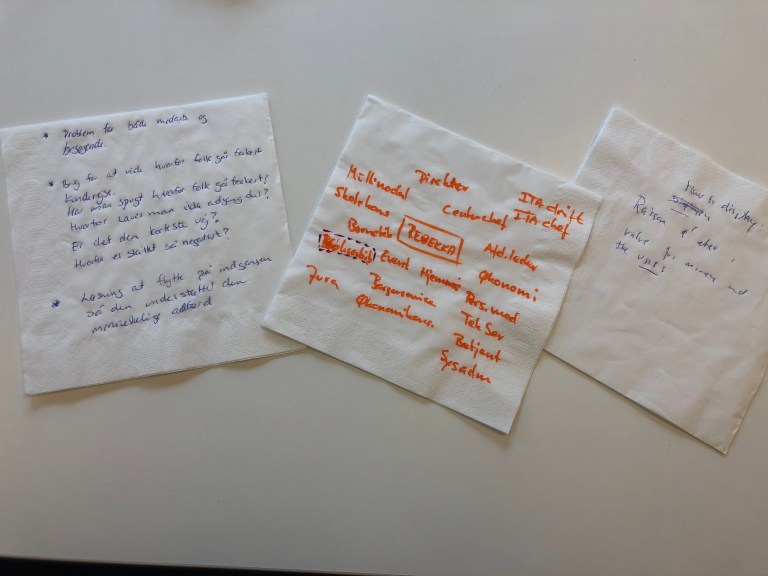 * Problem for både medarb og
besøgende.
* Brug for at vide hvorfor folk går forkert
Kunderejse.
Har man spurgt hvorfor folk går forkert?
Hvorfor laves man ikke adgang der?
Er det den korteste vej?
Hvorfor er skiltet så negativt?
* Løsning at flytte på indgangen
så den understøttet den
menneskelige adfærd
Multimodal Direktør ITA-drift
Skolekons Centerchef ITA-chef
Bornetik REBEKKA Afd.leder
Event Hjemmes Økonomi
Jura Borgerservice Pers.med
Økonomikons. Tek Ser
Betjent
Sysadm
How to display:
Raison d'être,
value for money and
the USP's